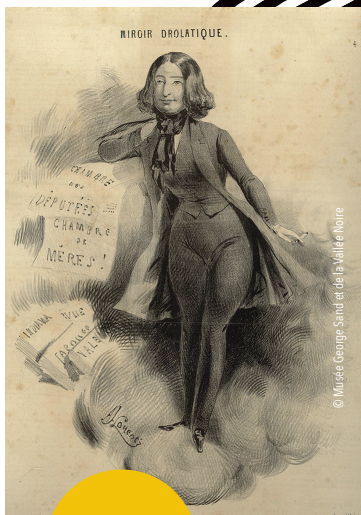 MIROIR DRÔLATIQUE.
4
CHAMBRE
DES
DÉPUTÉES
CHAMBRE
DE
MÈRES !
INDIANA
JACQUES
A Lorentz
© Musée George Sand et de la Vallée Noire